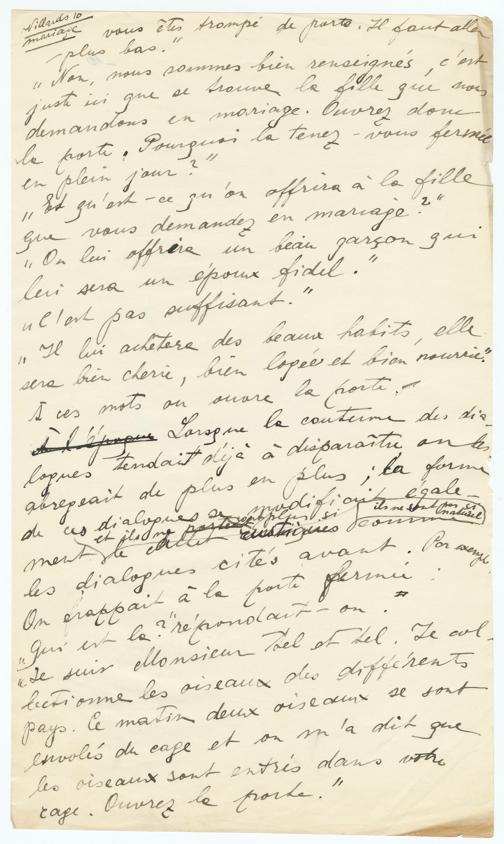 Villards 10
mariage
vous êtes trompé de porte. Il faut aller
plus bas."
"Non, nous sommes bien renseignés, c'est
juste ici que se trouve la fille que nous
demandons en mariage. Ouvrez donc
la porte. Pourquoi la tenez-vous fermée
en plein jour?"
"Et qu'est-ce qu'on offrira à la fille
que vous demandez en mariage?"
"On lui offrira un beau garçon qui
leri sera un époux fidel."
"C'est pas suffisant."
"Il lui achètera des beaux habits, elle
sera bien cherie, bien logée et bien nourrie."
A ces mots on ouvre la porte.
A l'époque Lorsque la coutume des dia-
logues tendait déjà à disparaître on les
abregeait de plus en plus; la forme
de ces dialogues se modifiait égale-
ment et ils ne si comme
les dialogues cités avant. Par exemple
On frappait à la porte fermée.
"Qui est la?" répondait-on.
"Je suis Monsieur tel et tel. Je col-
lectionne les oiseaux des différents
pays. Ce matin deux oiseaux se sont
envolés du cage et on m'a dit que
les oiseaux sont entrés dans votre
cage. Ouvrez la porte."